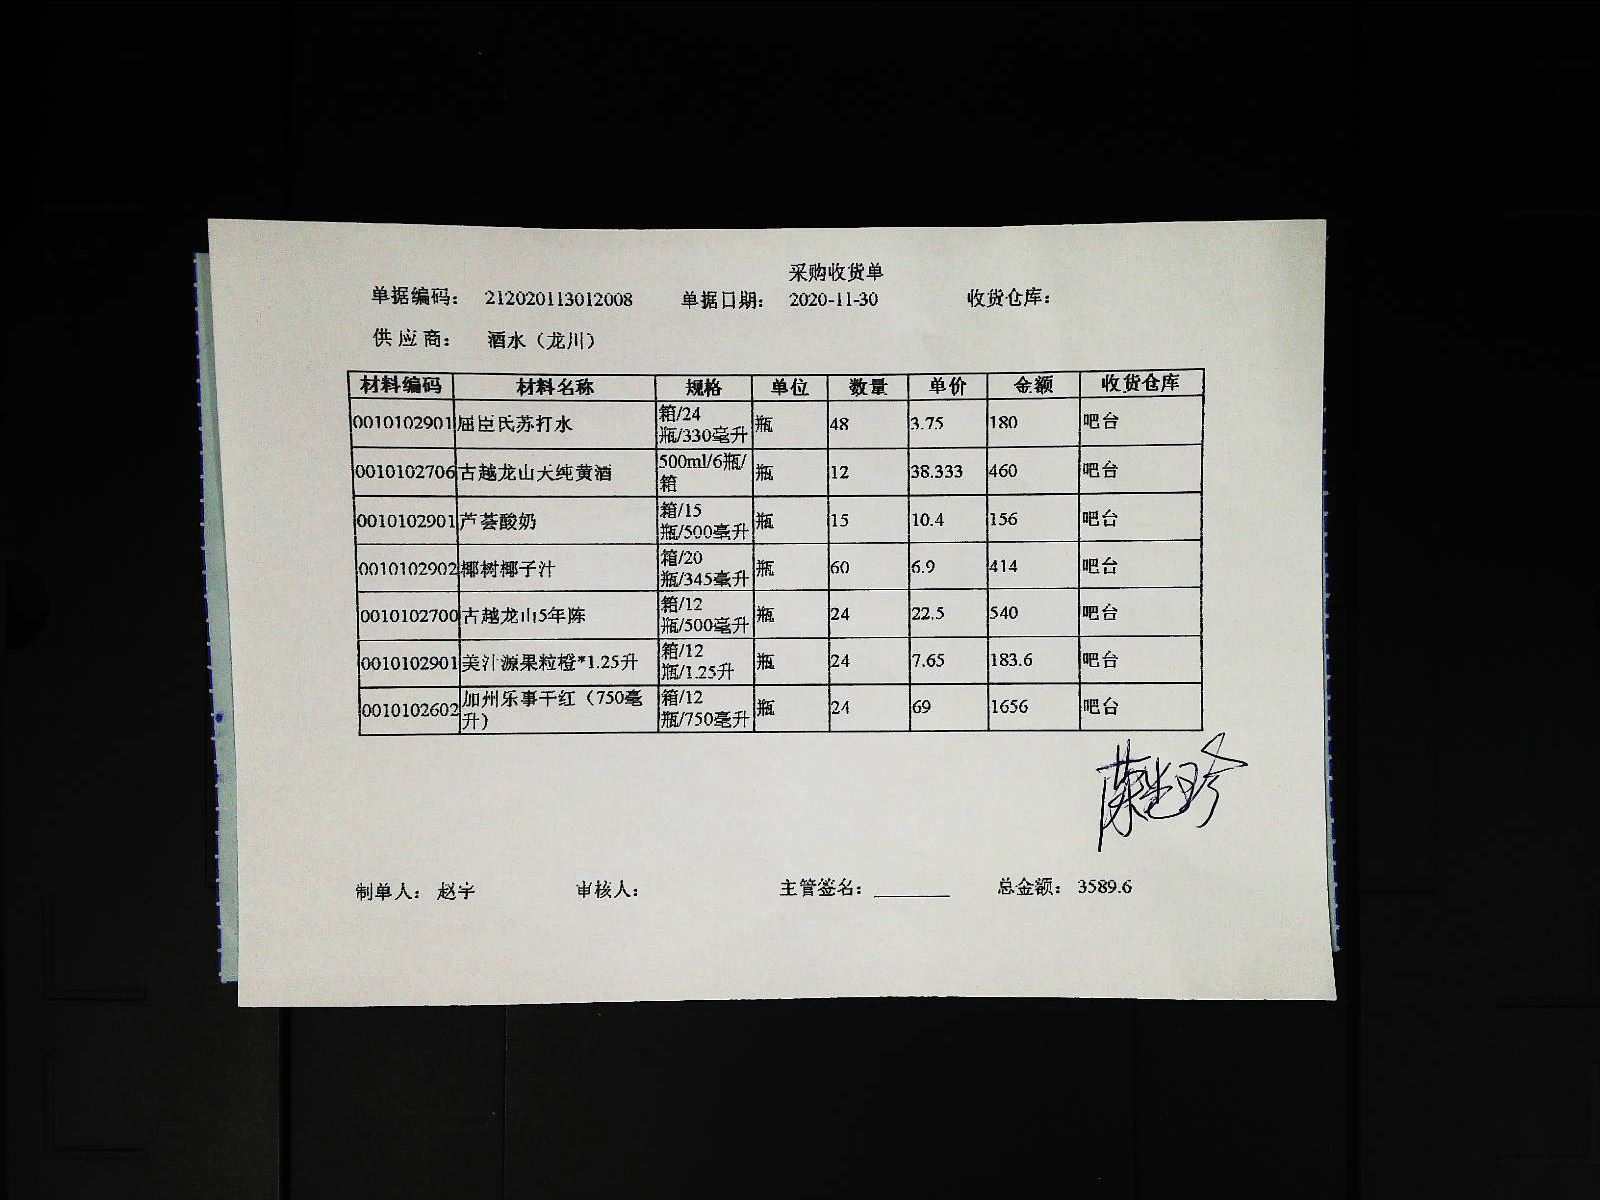 采购收货单
单据编码： 212020113012008 单据日期： 2020-11-30 收货仓库：
供 应 商： 酒水（龙川）
材料编码 材料名称 规格 单位 数量 单价 金额 收货仓库
0010102901 屈臣氏苏打水 箱/24瓶/330毫升 瓶 48 3.75 180 吧台
0010102706 古越龙山天纯黄酒 500ml/6瓶/箱 瓶 12 38.333 460 吧台
0010102901 芦荟酸奶 箱/15瓶/500毫升 瓶 15 10.4 156 吧台
0010102902 椰树椰子汁 箱/20瓶/345毫升 瓶 60 6.9 414 吧台
0010102700 古越龙山5年陈 箱/12瓶/500毫升 瓶 24 22.5 540 吧台
0010102901 美汁源果粒橙*1.25升 箱/12瓶/1.25升 瓶 24 7.65 183.6 吧台
0010102602 加州乐事干红（750毫升） 箱/12瓶/750毫升 瓶 24 69 1656 吧台
制单人： 赵宇 审核人： 主管签名： 总金额： 3589.6